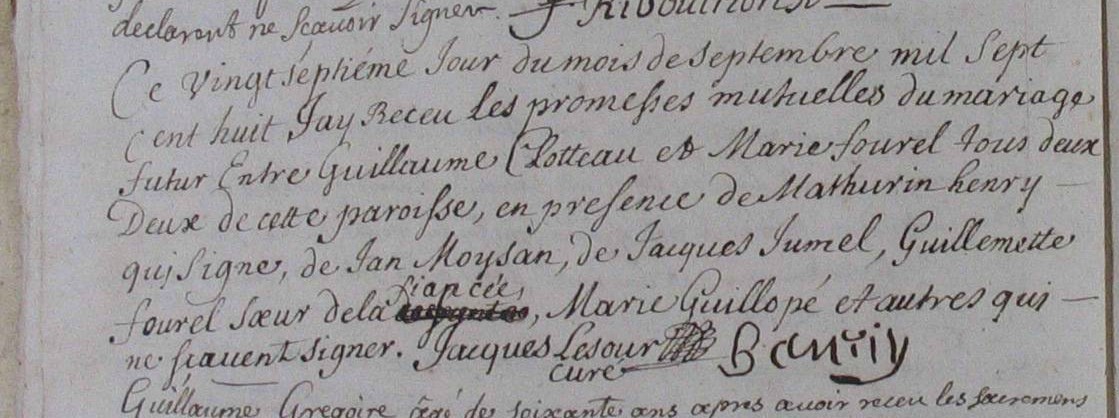 declarent ne scavoir signer.
Ce vingt séptiéme Jour du mois de septembre mil sept
cent huit Jay Receu les promesses mutuelles du mariage
futur Entre Guillaume Clotteau et Marie fourel tous deux
Deux de cette paroisse, en presence de Mathurin henry
qui signe, de Jan Moysan, de Jacques Jumel, Guillemette
fiancée
fourel sœur de la , Marie Guillopé et autres qui
ne scavent signer. Jacques Lesour
curé
Guillaume Gregoire âgé de soixante ans apres avoir receu les sacremens